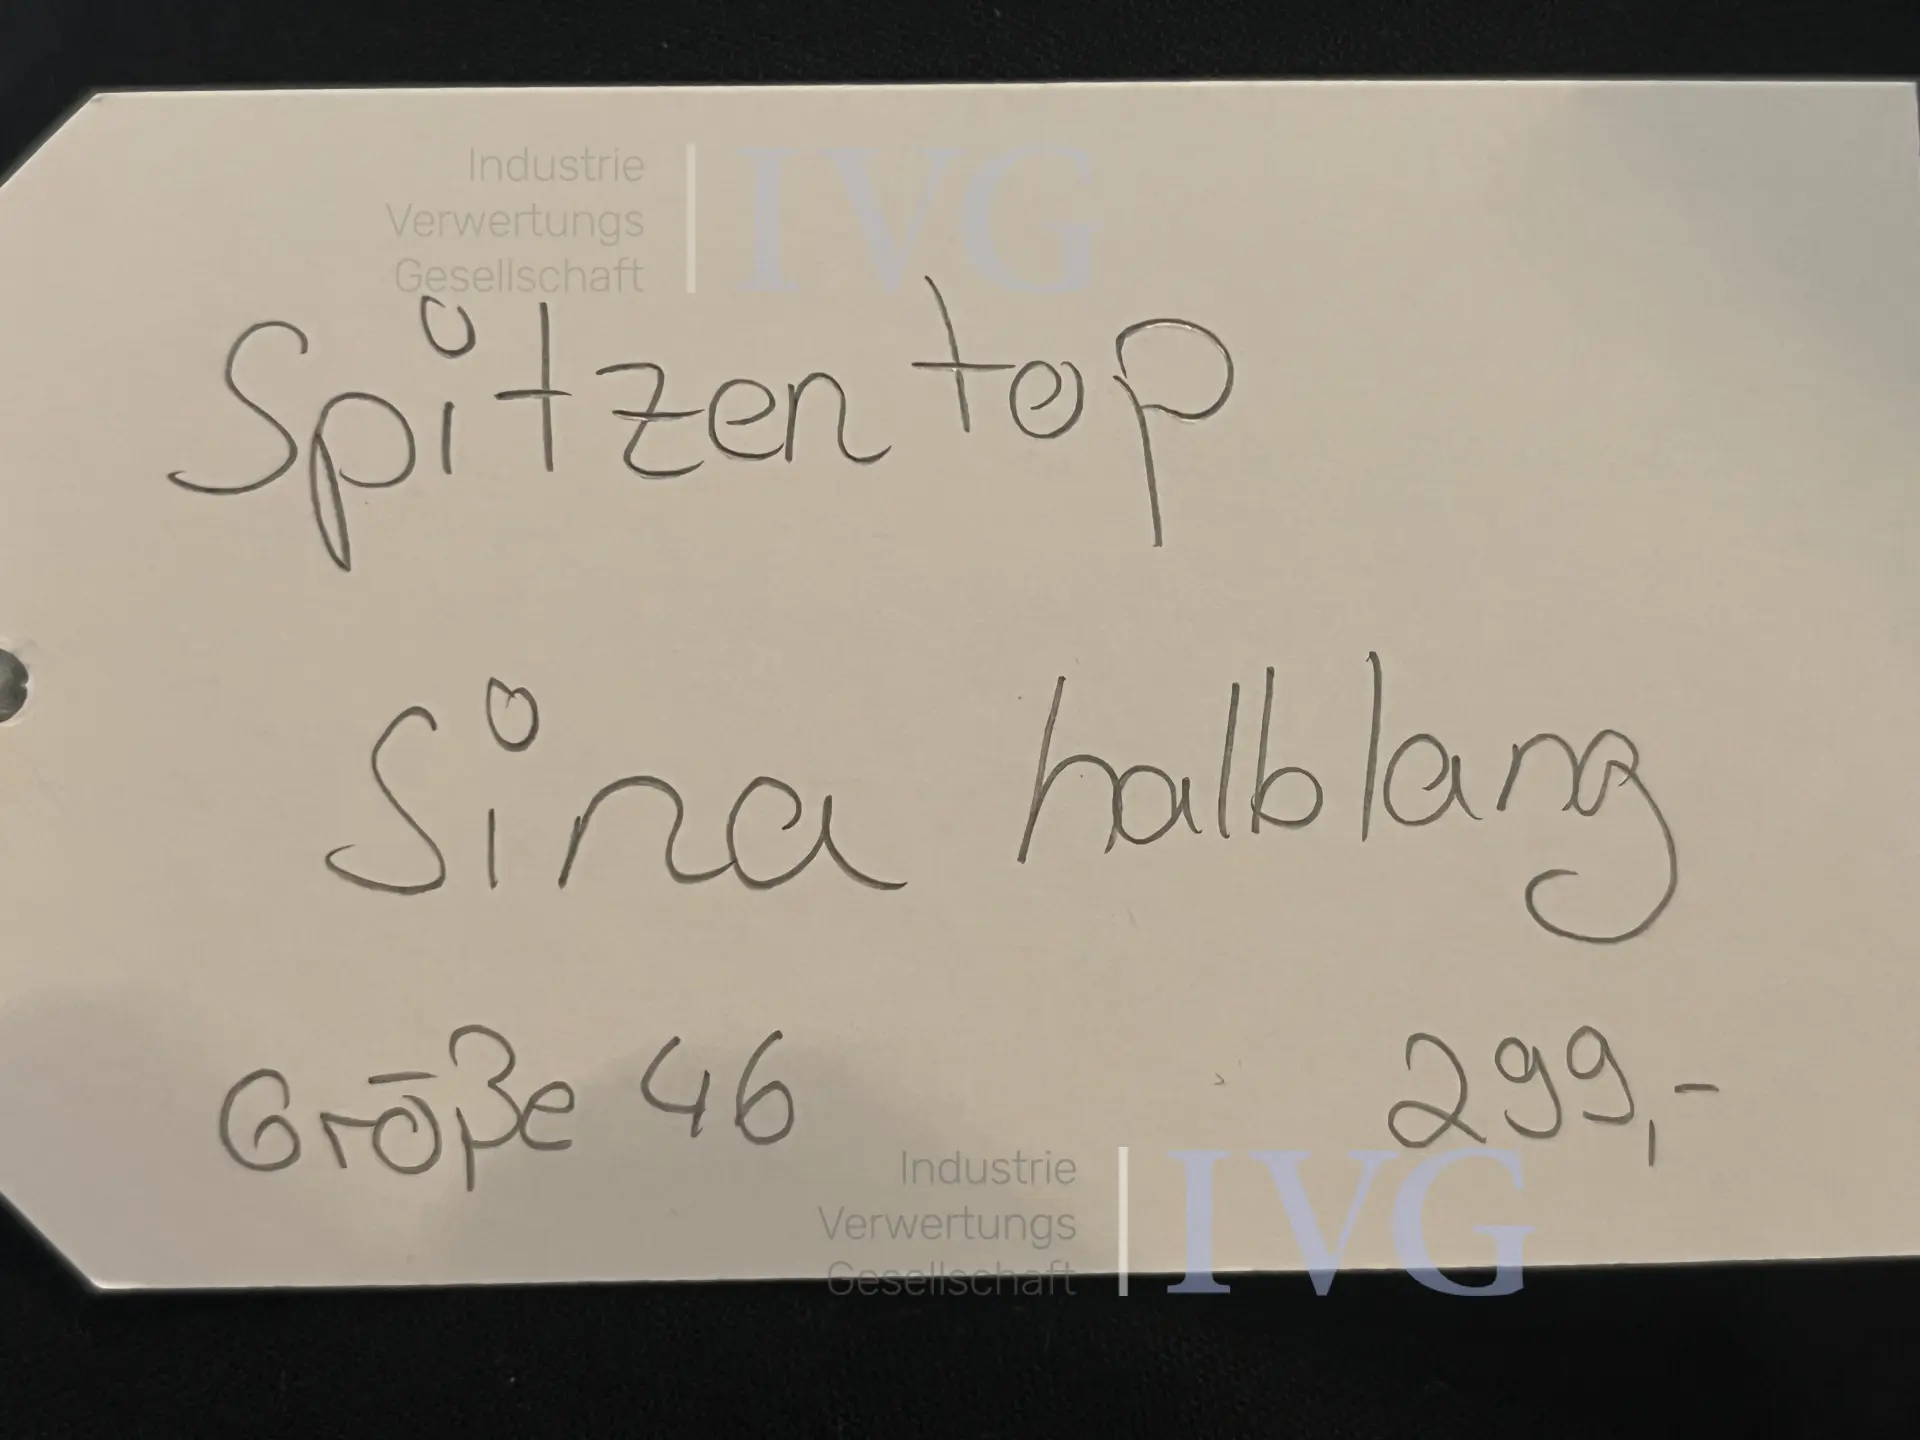 Industrie
Verwertungs
Gesellschaft
IVG
Spitzentop
Sina halblang
Größe 46 299,-
Industrie
Verwertungs
Gesellschaft
IVG